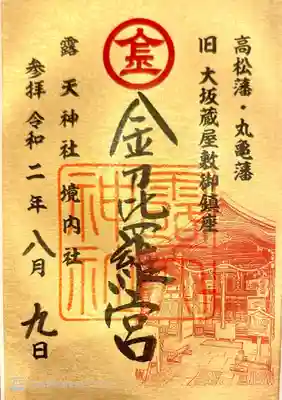 高松藩・丸亀藩
旧 大坂蔵屋敷御鎮座
金
金刀比羅宮
露天神社
露天神社 境内社
参拝 令和二年八月九日